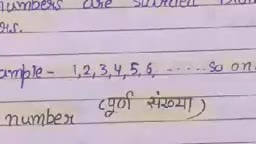 numbers are
rs.
ample - 1,2,3,4,5,6, ...... so on.
number (पूर्ण संख्या)